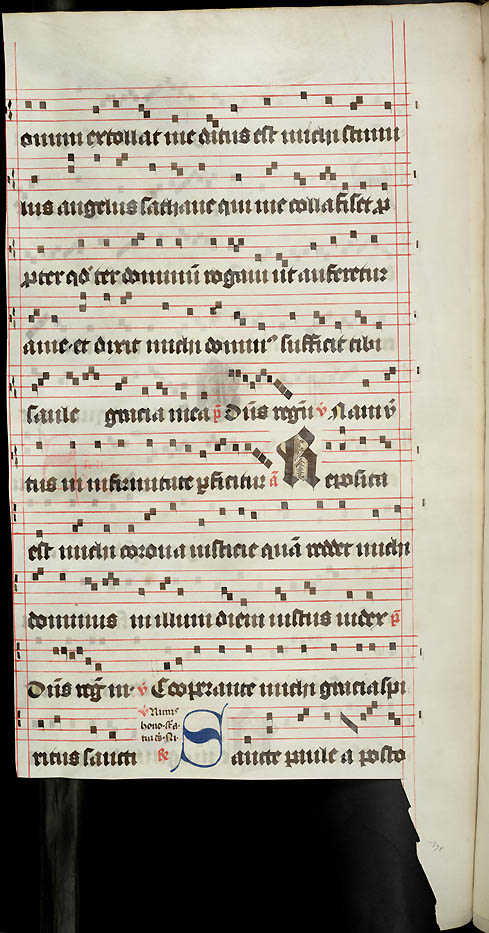 onum extollat me datus est michi stimu
lus angelus sathane qui me collafiset p
pter qd ter dominū rogaui ut auferetur
a me et dixit michi domin⁹ sufficit tibi
saule gracia mea p̄ Diis regn̄ v Nam v̄
tus in infirmitate p̱ficitur ā Reposita
est michi corona iusticie quā reddet michi
dominus in illum diem iustus iudex p̄
Diis reg̅ in v Cooperante michi gracia spi
v Nimis
hono
ritus sancti R Sancte paule a posto